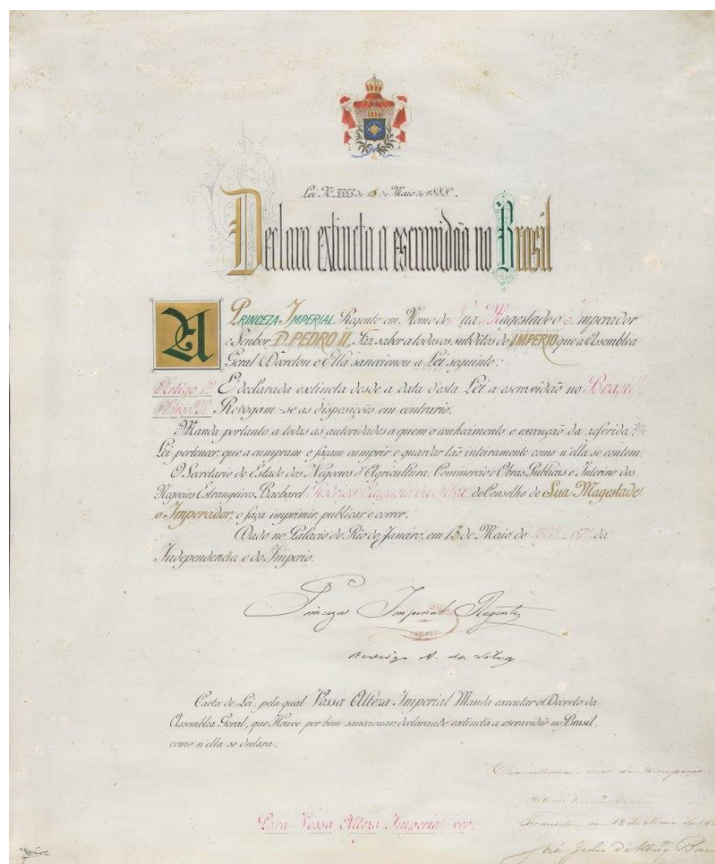 Lei Nº 3353 de 13 de Maio de 1888.
Declara extincta a escravidão no Brasil
A PRINCEZA IMPERIAL Regente em Nome de Sua Magestade o Imperador
o Senhor D. PEDRO II, Faz saber a todos os subditos do IMPERIO que a Assembléa
Geral Decretou e Ella sanccionou a Lei seguinte:
Artigo 1º É declarada extincta desde a data d'esta Lei a escravidão no Brasil.
Artigo 2º Revogam-se as disposições em contrario.
Manda portanto a todas as autoridades a quem o conhecimento e execução da referida
Lei pertencer, que a cumpram e façam cumprir e guardar tão inteiramente como n'ella se contem.
O Secretario de Estado dos Negocios d'Agricultura, Commercio e Obras Publicas e Interino dos
Negocios Estrangeiros, Bacharel Rodrigo Augusto da Silva do Conselho de Sua Magestade
o Imperador, o faça imprimir, publicar e correr.
Dado no Palacio do Rio de Janeiro, em 13 de Maio de 1888 67º da
Independencia e do Imperio.
Princeza Imperial Regente
Rodrigo A. da Silva
Carta de Lei, pela qual Vossa Alteza Imperial Manda executar o Decreto da
Assembléa Geral, que Houve por bem sanccionar declarando extincta a escravidão no Brasil,
como n'ella se declara.
Para Vossa Alteza Imperial ver.
Chancellaria-mór do Imperio.
Transitou em 13 de Maio de
José Julio d'Albuqº Barros